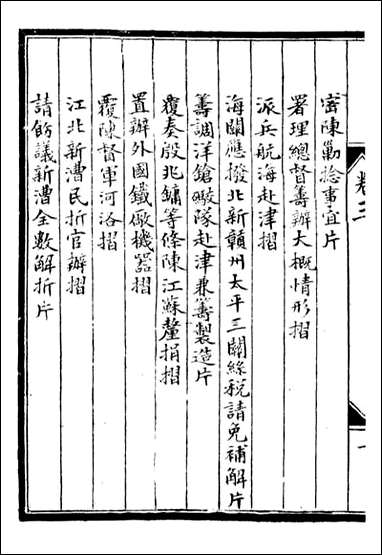 卷三
密陳勦捻事宜片
署理總督籌辦大概情形摺
派兵航海赴津摺
海關應撥北新贛州太平三關絲税請免補解片
籌調洋鎗礮隊赴津兼籌製造片
覆奏殷兆鏞等條陳江蘇釐捐摺
置辦外國鐵廠機器摺
覆陳督軍河洛摺
江北新漕民折官辦摺
請飭議新漕全數解折片